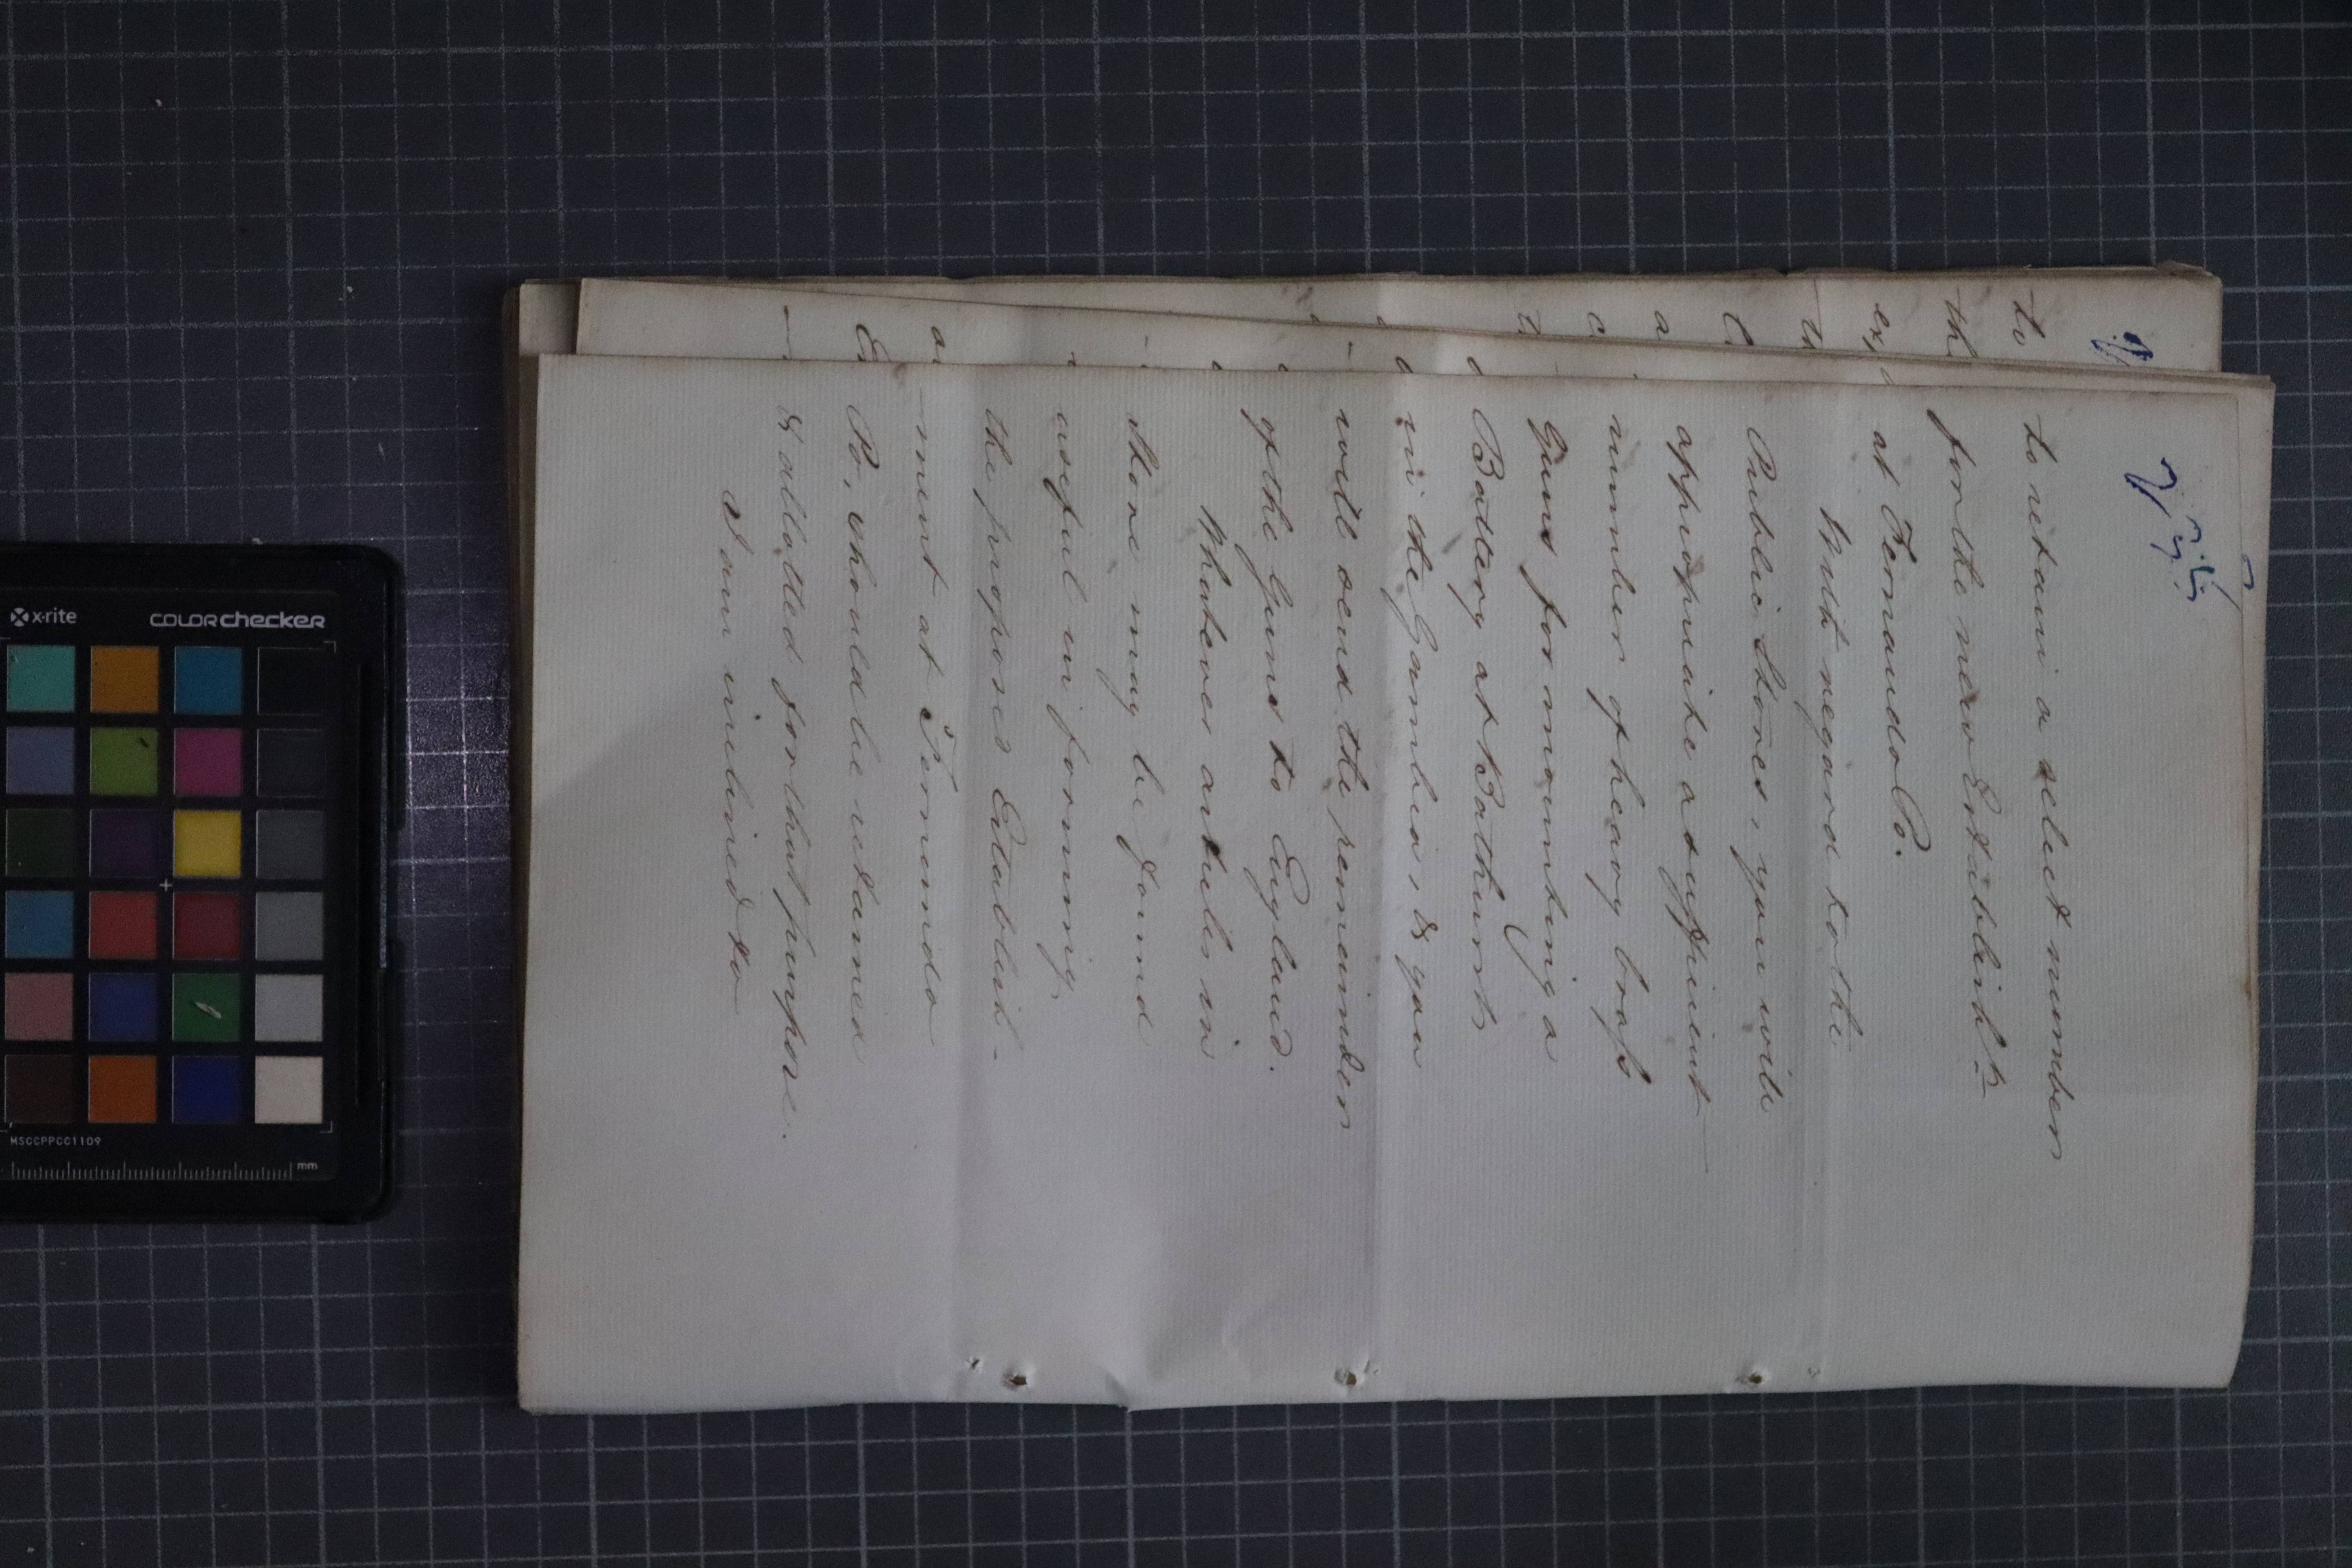 to retain a select number
for the new Establisht
at Fernando Po.
With regard to the
Public Stores, you will
appropriate a sufficient
number of heavy brass
Guns for mounting a
Battery at Bathurst
in the Gambia, & you
will send the remainder
of the Guns to England.
Whatever articles in
Store may be found
useful in forming
the proposed Establish-
-ment at Fernando
Po, should be retained
& allotted for that purpose.
I am inclined to
to
th
x-rite
COLORchecker
MSCCPPCC1109
mm